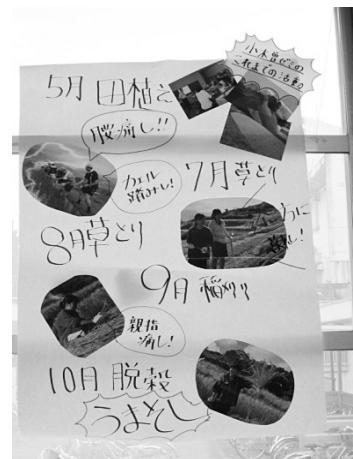 小木曽ゼミの
これまでの活動
5月 田植え
腰痛し!!
カエル
踏みし!
7月 草とり
8月 草とり
9月 稲刈り
親指
痛し!
10月 脱穀
うまそし